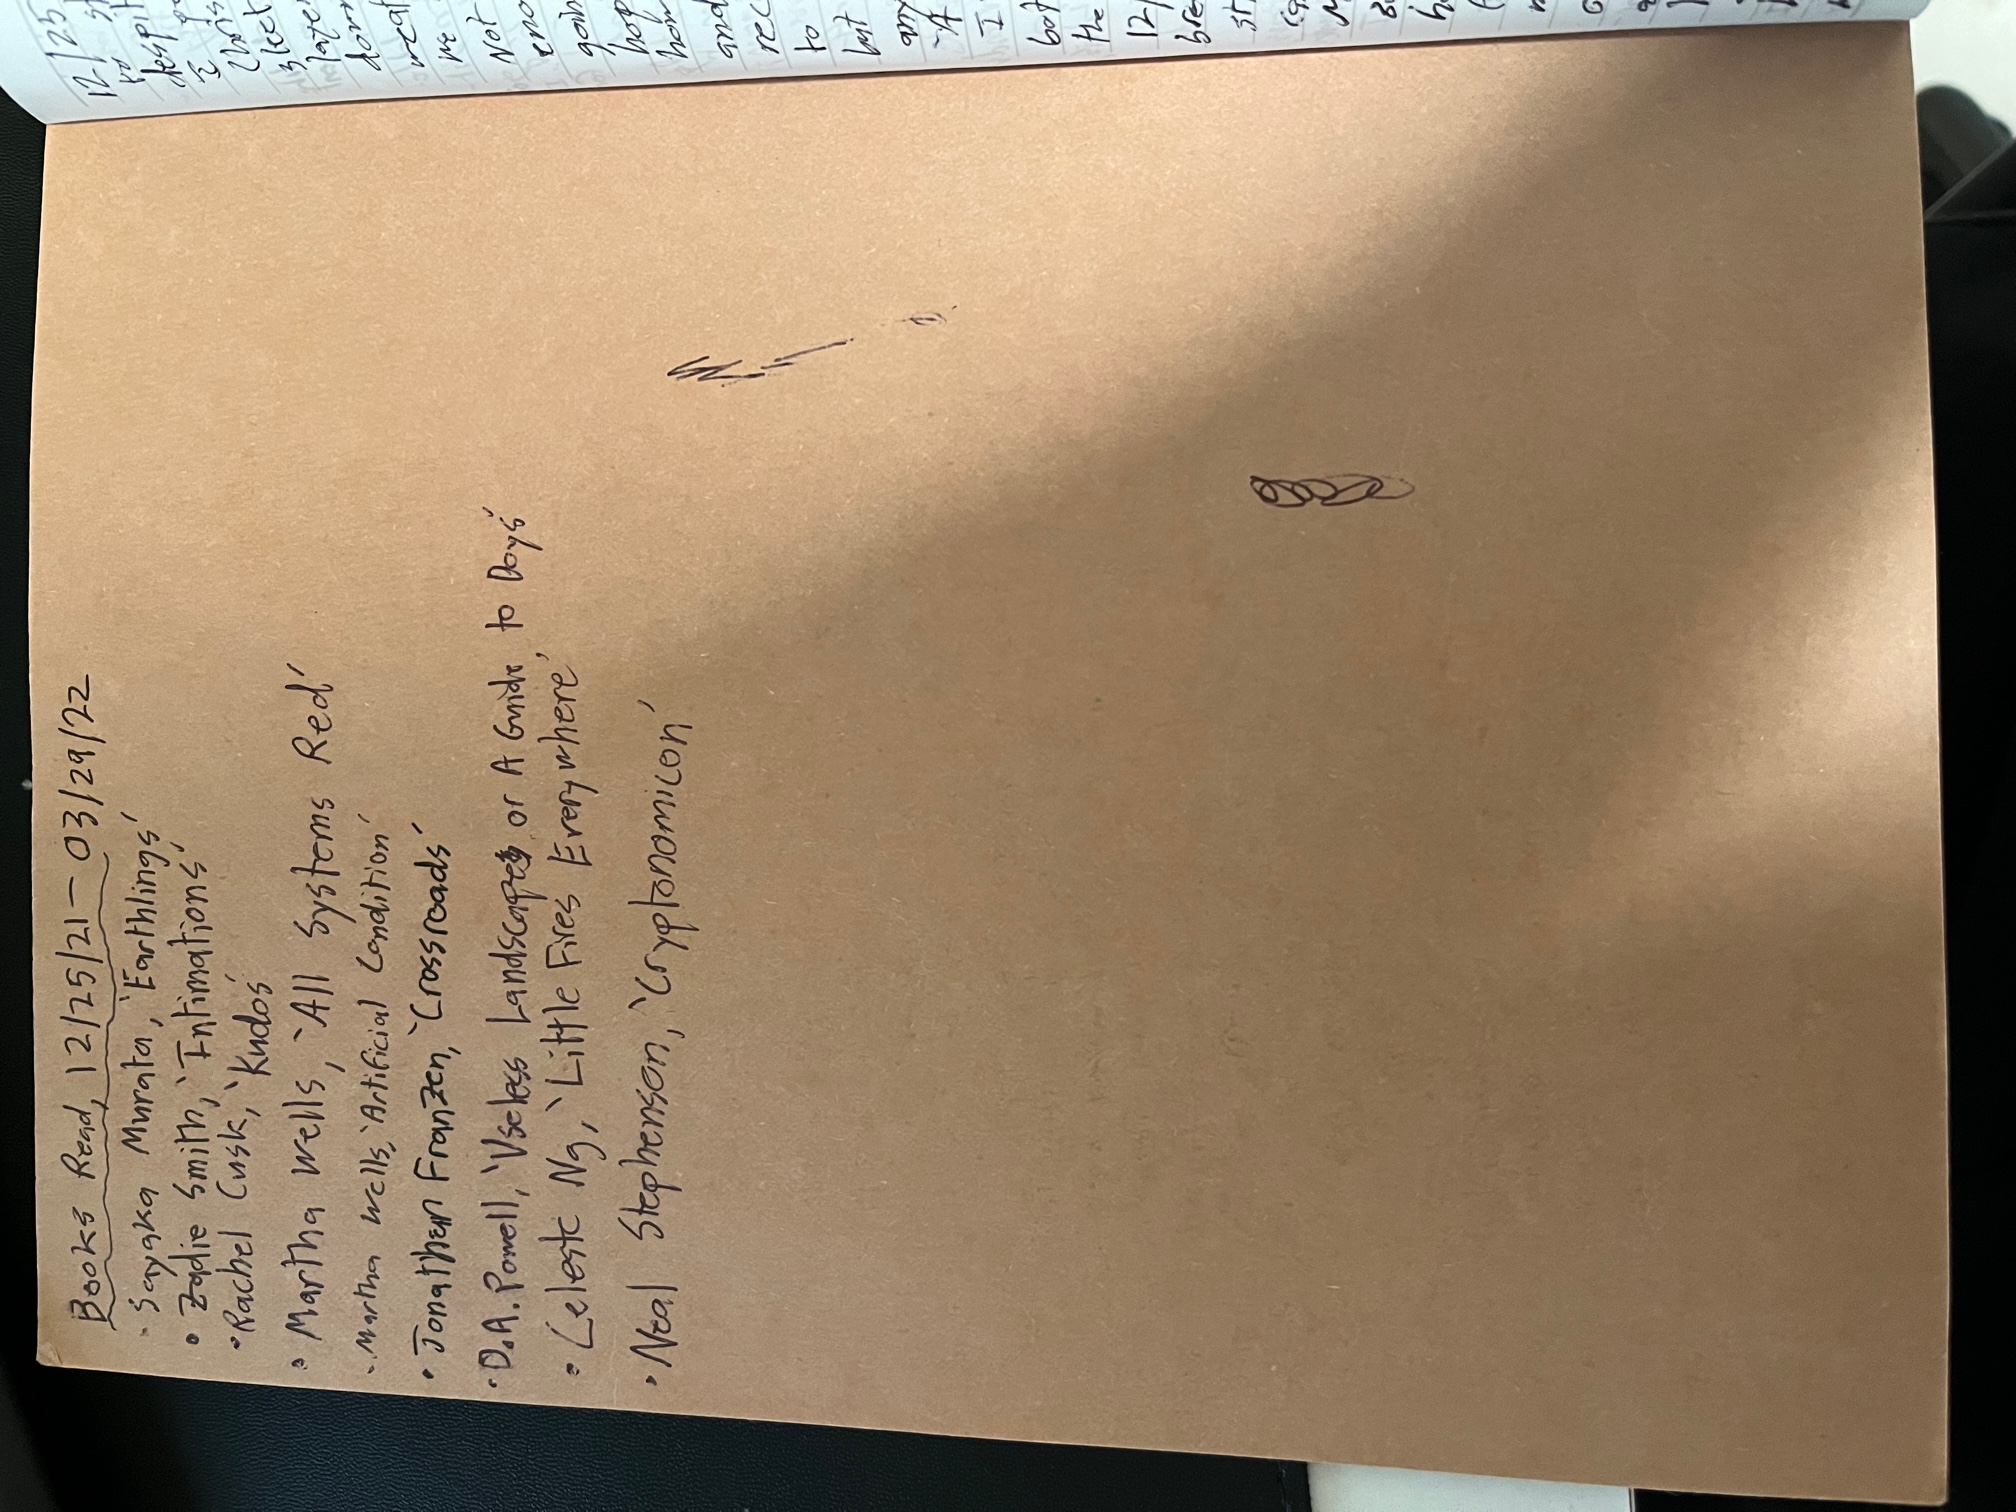 Books Read, 12/25/21 - 03/29/22
· Sayaka Murata, 'Earthlings'
· Zadie Smith, 'Intimations'
· Rachel Cusk, 'Kudos'
· Martha Wells, 'All Systems Red'
· Martha Wells, 'Artificial Condition'
· Jonathan Franzen, 'Crossroads'
· D.A. Powell, 'Useless Landscape, or A Guide to Boys'
· Celeste Ng, 'Little Fires Everywhere'
· Neal Stephenson, 'Cryptonomicon'
12/25
to
despit
I
Chris
sleet
laye
down
weat
we
Not
eno
goin
hop
hom
and
rec
to
but
any
'A
I
bot
the
12/
bre
st